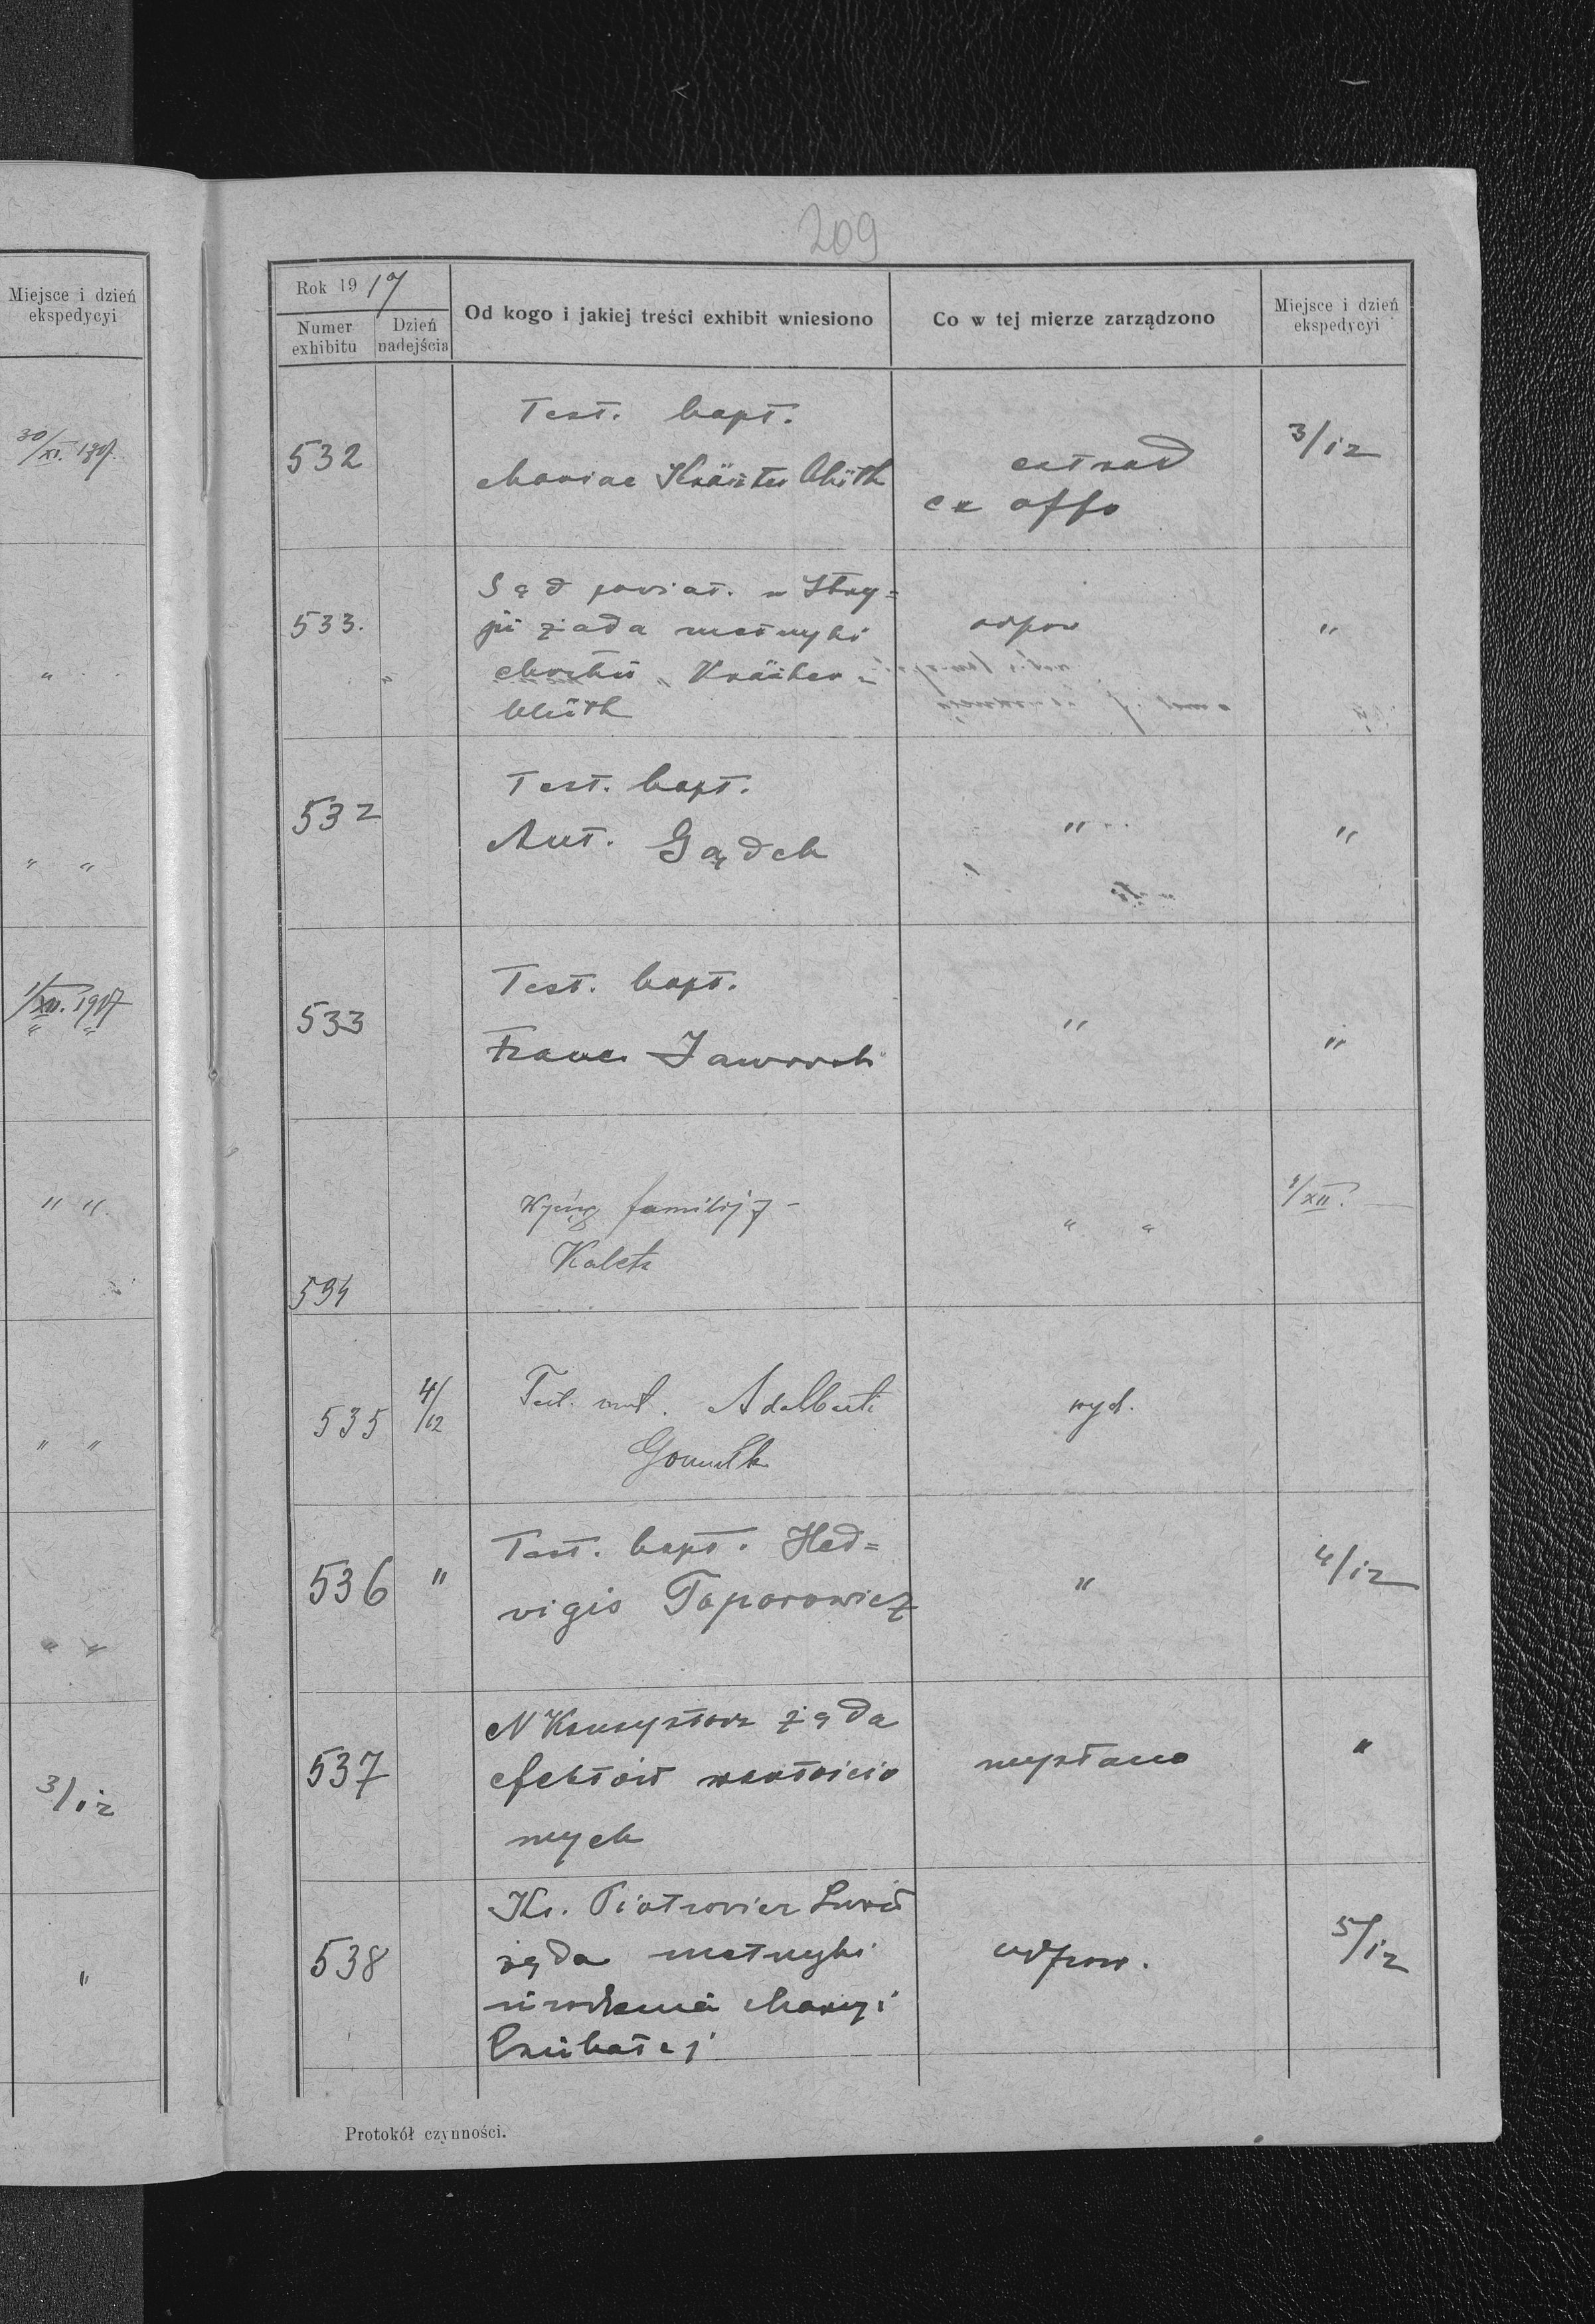 209
Miejsce i dzień
ekspedycyi
30/XI. 1917.
"
" "
1/XII. 1917
" "
" "
" "
" "
3/12
"
Rok 1917
Numer
exhibitu
Dzień
nadejścia
Od kogo i jakiej treści exhibit wniesiono
Co w tej mierze zarządzono
Miejsce i dzień
ekspedycyi
532
Test. bapt.
Mariae Kräuterblüth
extrad
ex offo
3/12
533.
"
Sąd powiat. w Stry=
ju żąda metryki
" Kräuter=
blüth
odpow
"
532
Test. bapt.
Ant. Gądek
"
"
533
Test. bapt.
Franc. Jaworsk
"
"
534
Wyciąg familijny
Kaleta
" "
4/XII.
535
4/12
Test. Adalberti
Gomułk
wyd.
536
"
Test. bapt. Hed=
vigis Toporowicz
"
4/12
537
N Konsystorz żąda
efektów wartościo
wych
wysłano
"
538
Ks. Piotrowicz Lwów
żąda metryki
urodzenia Maryi
odpow.
5/12
Protokół czynności.